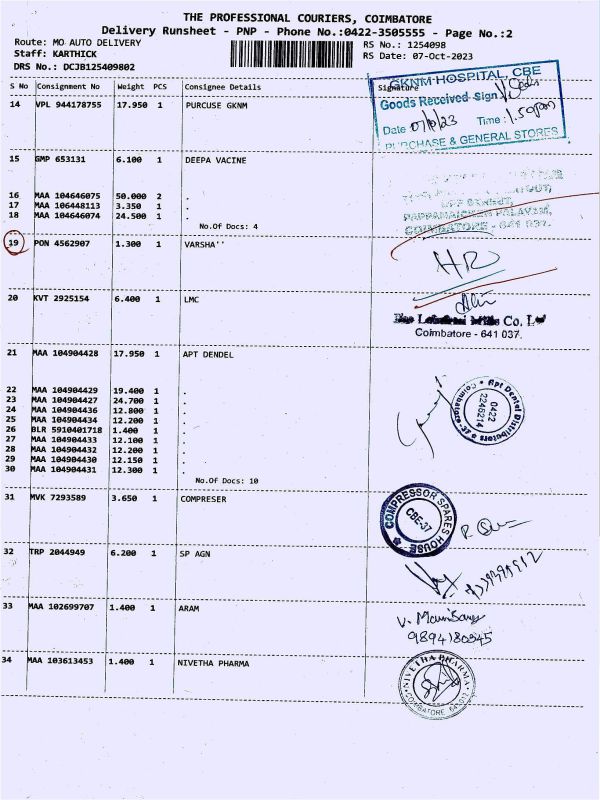 THE PROFESSIONAL COURIERS, COIMBATORE
Delivery Runsheet - PNP - Phone No.:0422-3505555 - Page No.:2
Route: MO AUTO DELIVERY RS No.: 1254098
Staff: KARTHICK RS Date: 07-Oct-2023
DRS No.: DCJB125409802
S No Consignment No Weight PCS Consignee Details Signature
14 VPL 944178755 17.950 1 PURCUSE GKNM
GKNM HOSPITAL, CBE
Goods Received Sign
Date 07/10/23 Time : 1.50pm
PURCHASE & GENERAL STORES
15 GMP 653131 6.100 1 DEEPA VACINE
16 MAA 104646075 50.000 2 .
17 MAA 106448113 3.350 1 .
18 MAA 104646074 24.500 1 .
No.Of Docs: 4
PAPPANAICKEN PALAYAM,
COIMBATORE - 641 037.
19 PON 4562907 1.300 1 VARSHA''
HR
20 KVT 2925154 6.400 1 LMC
Mills Co. L
Coimbatore - 641 037.
21 MAA 104904428 17.950 1 APT DENDEL
22 MAA 104904429 19.400 1 .
23 MAA 104904427 24.700 1 .
24 MAA 104904436 12.800 1 .
25 MAA 104904434 12.200 1 .
26 BLR 5910401718 1.400 1 .
27 MAA 104904433 12.100 1 .
28 MAA 104904432 12.200 1 .
29 MAA 104904430 12.150 1 .
30 MAA 104904431 12.300 1 .
No.Of Docs: 10
Apt Dental Distributors
Coimbatore-37
0422
2246214
31 MVK 7293589 3.650 1 COMPRESER
COMPRESSOR SPARES HOUSE
CBE-37
32 TRP 2044949 6.200 1 SP AGN
33 MAA 102699707 1.400 1 ARAM
9894180545
34 MAA 103613453 1.400 1 NIVETHA PHARMA
NIVETHA PHARMA
COIMBATORE